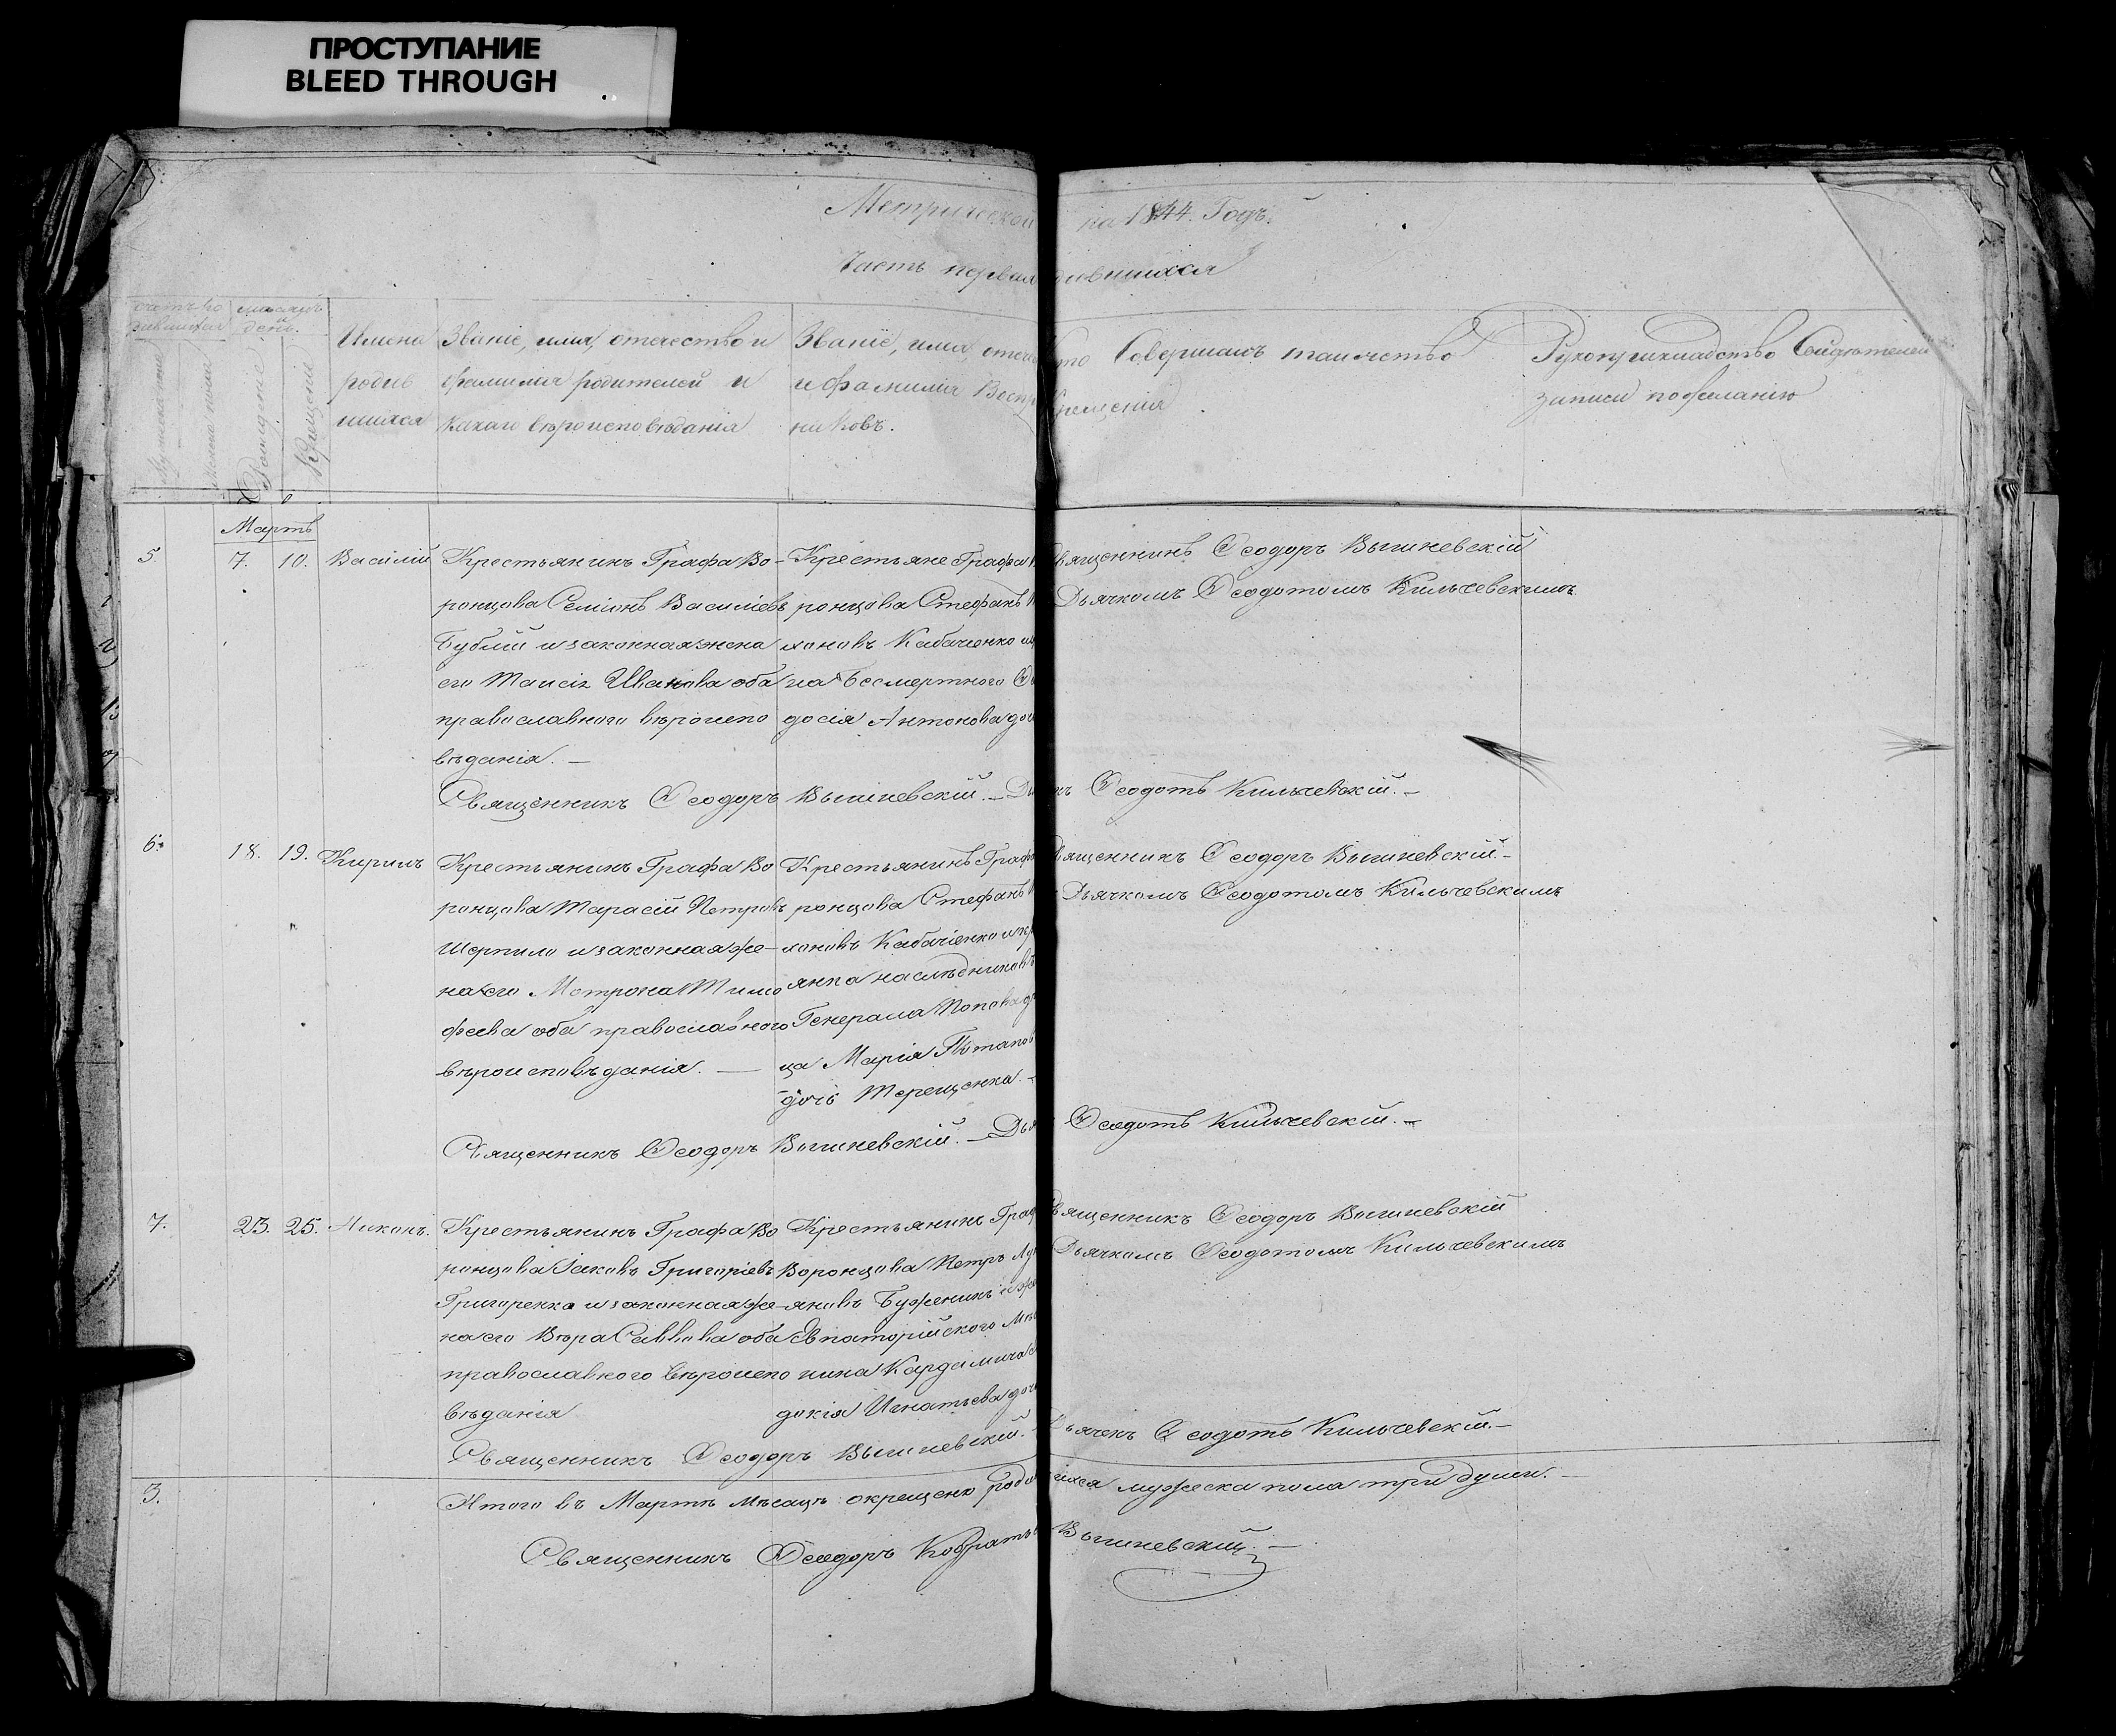 ПРОСТУПАНИЕ
BLEED THROUGH
Метрической на 1844. Годъ.
Часть первая дившихся
месяцъ
и
день.
Рожденіе
Крещеніе
Имена
родив
шихся
Званіе, имя, отечество и
фамилія родителей и
Какаго вѣроисповѣданія
Званіе, имя, отече
и фамилія Воспр
никовъ.
то Совершалъ таинство
Крещенія
Рукоприкладство Свидѣтелей
записи по желанію
Мартъ
5. 7. 10. Василій
Крестьянинъ Графа Во-
ронцова Семіонъ Василіевъ
Бублій и законная жена
его Таисія Иванова оба
православного вѣроиспо
вѣданія. —
Крестьяне Графа
ронцова Стефанъ
Кабаченко
на Бессмертного
досія Антонова доч
Священникъ Ѳеодоръ Вышневскій
Дьячкомъ Ѳеодотомъ Кильчевскимъ
Священникъ Ѳеодоръ Вышневскій. — Дья къ Ѳеодотъ Кильчевскій. —
6. 18. 19. Кирилъ
Крестьянинъ Графа Во
ронцова Тарасій Петровъ
Шерпило и законная же-
на его Мотрона Тимо
феева оба православного
вѣроисповѣданія. —
Крестьянинъ Граф
ронцова Стефанъ
Кабаченко и кр
янка наслѣдниковъ
Генерала Попова д
ца Марія Потапов
дочь Терещенка. —
Священникъ Ѳеодоръ Вышневскій —
Дьячкомъ Ѳеодотомъ Кильчевскимъ
Священникъ Ѳеодоръ Вышневскій. — Дья Ѳеодотъ Кильчевскій. —
7. 23. 25. Никонъ.
Крестьянинъ Графа Во
ронцова Іаковъ Григоріевъ
Григоренко и законная же-
на его Вѣра Саввова оба
православного вѣроиспо
вѣданія
Крестьянинъ Граф
Воронцова Петръ
яновъ Буженикъ и же
Евпаторійского Мѣ
нина Кардамича
докія Игнатьева доч
Священникъ Ѳеодоръ Вышневскій
Дьячкомъ Ѳеодотомъ Кильчевскимъ
Священникъ Ѳеодоръ Вышневскій. — Дьячекъ Ѳеодотъ Кильчевскій. —
3. Итого въ Мартѣ мѣсяцѣ окрещено роди шихся мужеска пола три души. —
Священникъ Ѳеодоръ Вышневскій. —